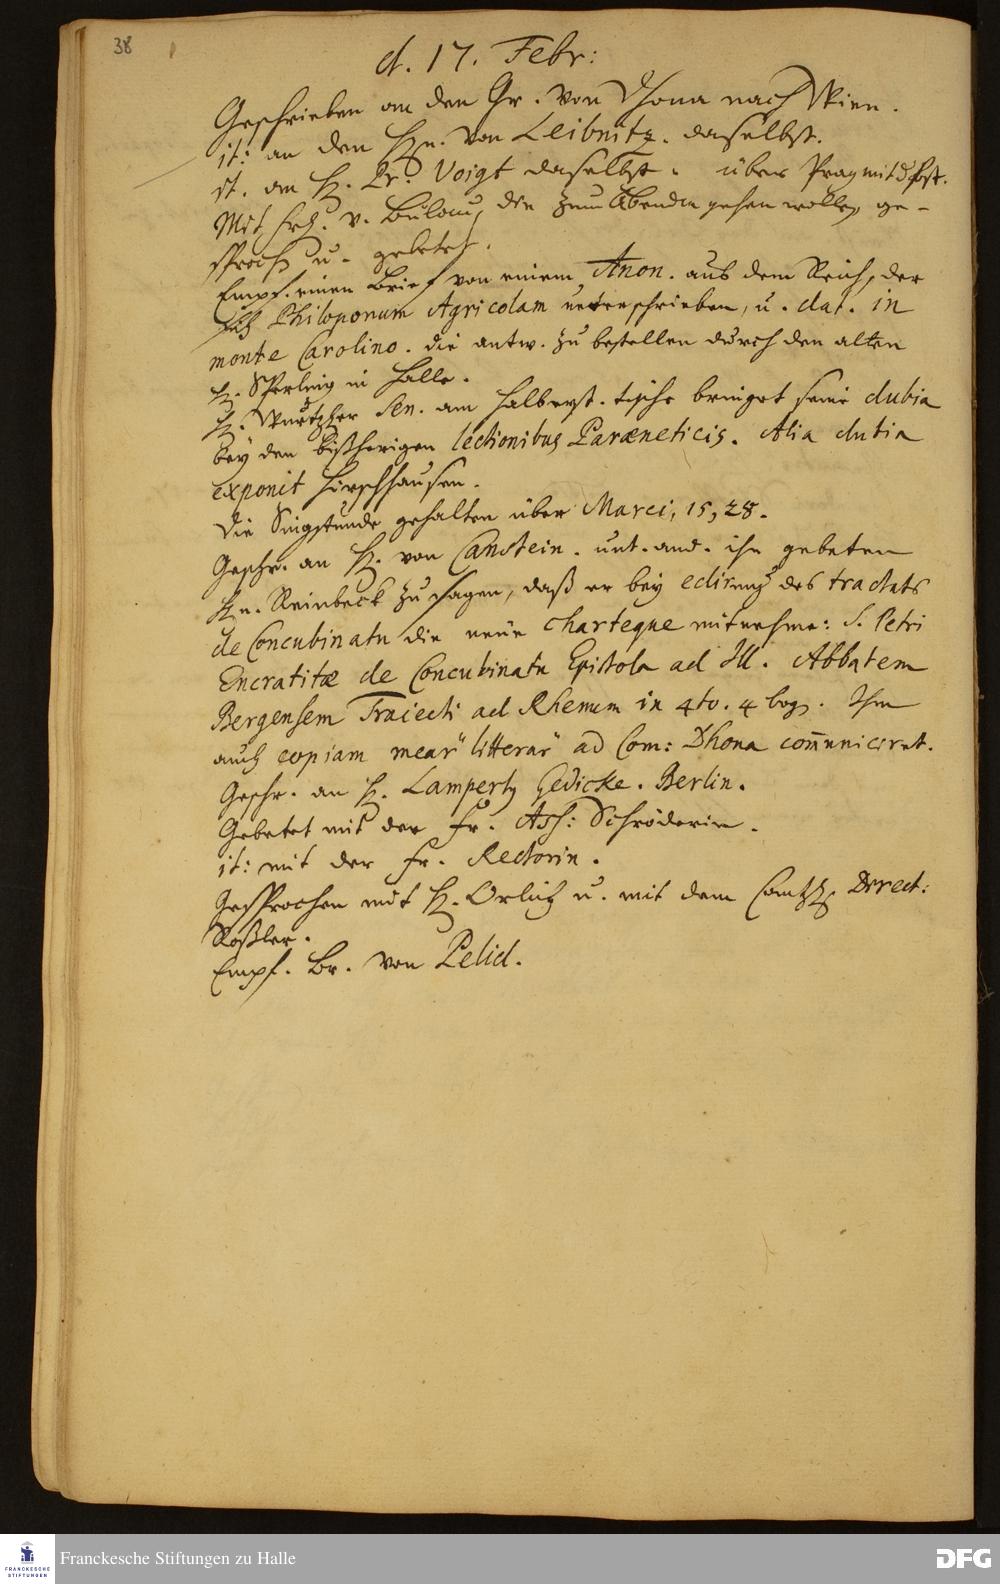 38
d. 17. Febr:
Geschrieben an den Gr. von Dhona nach Wien.
it: an den Hn. von Leibnitz. daselbst.
it. an H. Pr. Voigt daselbst. über Prag mit d. Post.
Mit Frl. v. Bülow, die zum Abendm gehen wollen, ge-
sproch u. gebetet.
Empf. einen Brief von einem Anon. aus dem Reich, der
sich Philoponum Agricolam unterschrieben, u. dat. in
monte Carolino. die antw. zu bestellen durch den alten
H. Sperling in Halle.
H. Sen. am Halberst. tische bringet seine dubia
bey den bißherigen lectionibus Paræneticis. Alia dubia
exponit Hirschhausen.
Die Singstunde gehalten über Marci, 15, 28.
Geschr. an H. von Canstein. unt. and. ihn gebeten
Hn. Reinbeck zu sagen, daß er bey edirung des tractats
de Concubinatu die neue charteque mitnehme: S. Petri
Encratitæ de Concubinatu Epistola ad Ill. Abbatem
Bergensem Traiecti ad Rhenum in 4to. 4 bog. Ihm
auch copiam mear" litterar" ad Com: Dhona com̅uniciret.
Geschr. an H. Lamperty Gedicke. Berlin.
Gebetet mit der Fr. Ass: Schröderin.
it: mit der Fr. Rectorin.
Gesprochen mit H. Orlich u. mit dem Direct:
Roßler.
Empf. Br. von Pelid.
Franckesche Stiftungen zu Halle
FRANCKESCHE
STIFTUNGEN
DFG